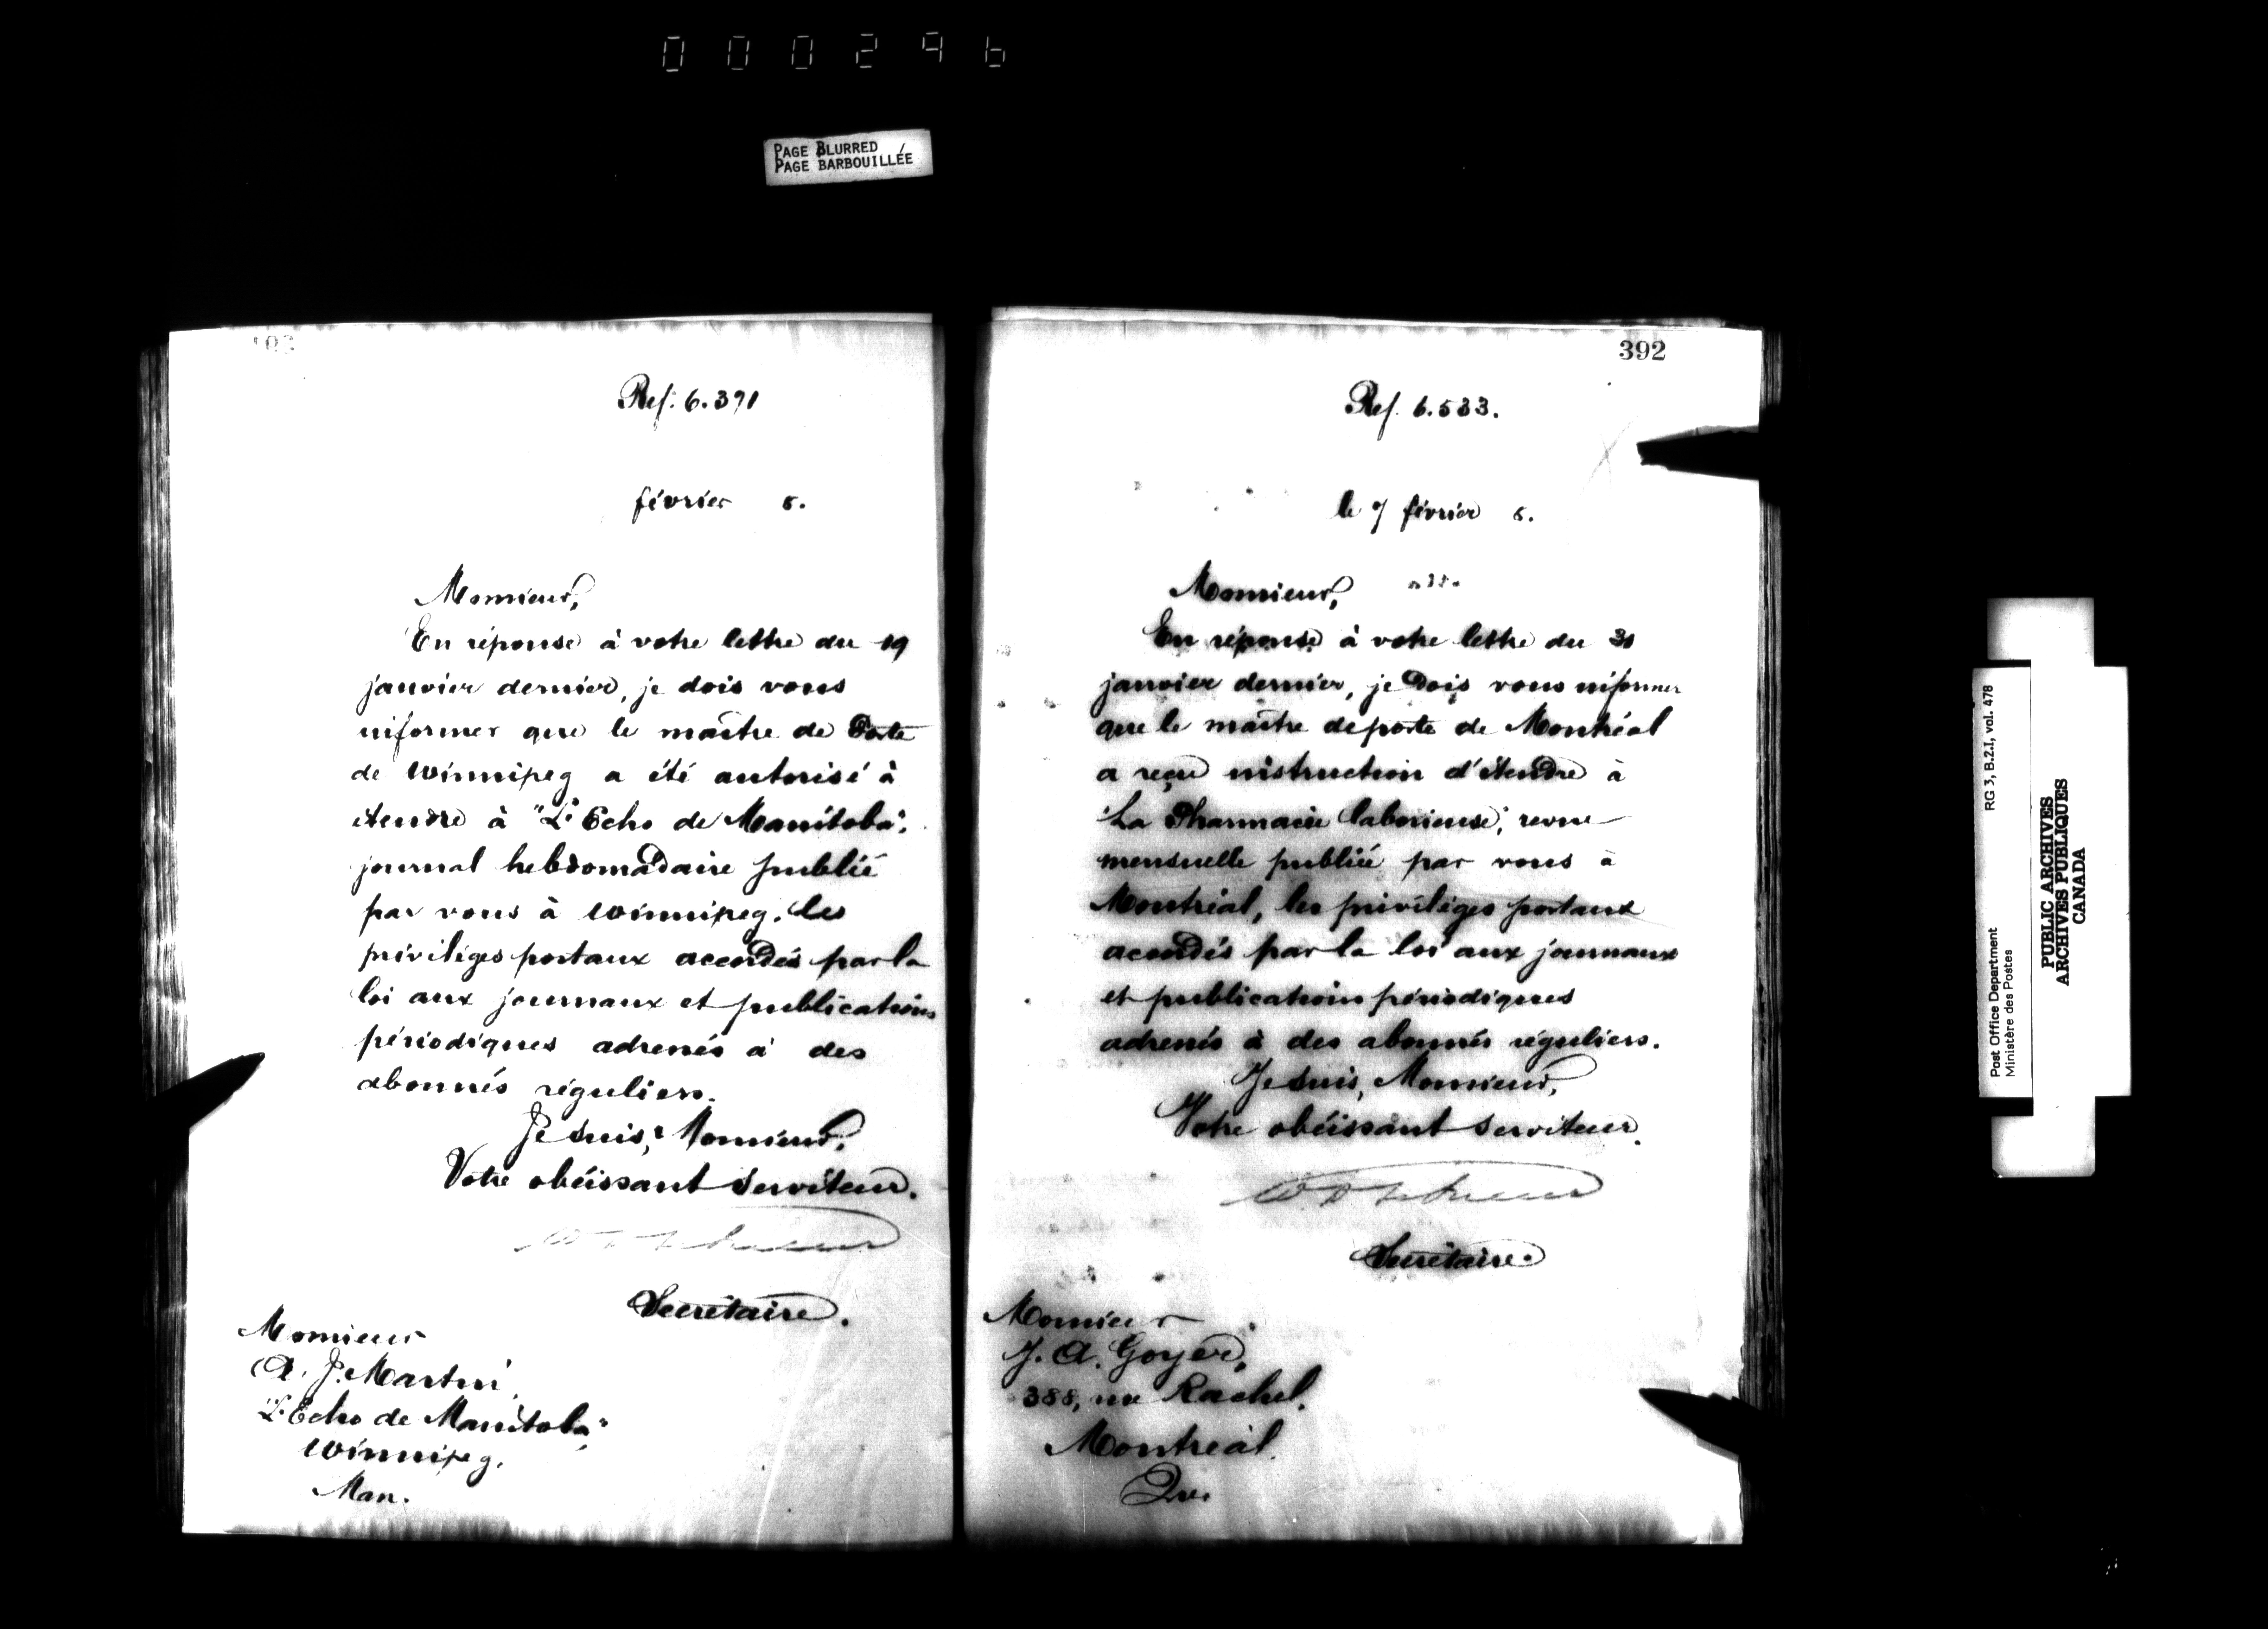 000296
PAGE BLURRED
PAGE BARBOUILLÉE
Ref. 6.391
février 5.
Monsieur,
En réponse à votre lettre du 19
janvier dernier, je dois vous
informer que le maître de Poste
de Winnipeg a été autorisé à
étendre à "L'Echo de Manitoba",
journal hebdomadaire publié
par vous à Winnipeg, les
privilèges postaux accordés par la
loi aux journaux et publications
périodiques adressés à des
abonnés réguliers.
Je suis, Monsieur,
Votre obéissant serviteur.
Secrétaire.
Monsieur
A. J. Martin,
"L'Echo de Manitoba",
Winnipeg,
Man.
392
Ref. 6.533.
le 7 février 5.
Monsieur,
En réponse à votre lettre du 31
janvier dernier, je dois vous informer
que le maître de poste de Montréal
a reçu instruction d'étendre à
"La Pharmacie laborieuse", revue
mensuelle publiée par vous à
Montréal, les privilèges postaux
accordés par la loi aux journaux
et publications périodiques
adressés à des abonnés réguliers.
Je suis, Monsieur,
Votre obéissant serviteur.
Secrétaire.
Monsieur
J. A. Goyer,
388, rue Rachel,
Montréal,
Que.
Post Office Department
Ministère des Postes
RG 3, B.2.I, vol. 478
PUBLIC ARCHIVES
ARCHIVES PUBLIQUES
CANADA